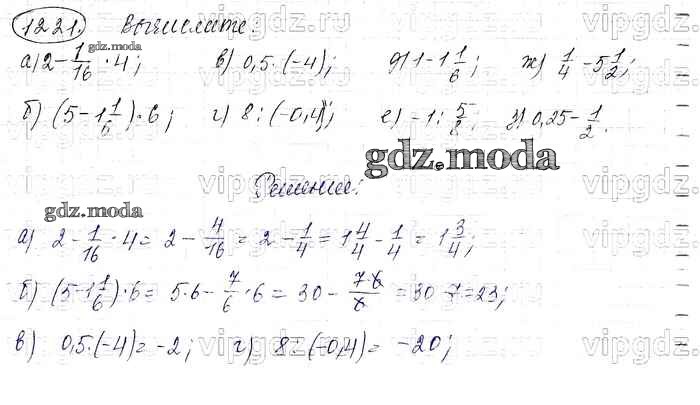 1221. Вычислите:
а) 2 - 1/16 · 4; в) 0,5 · (-4); д) 1 - 1 1/6; ж) 1/4 - 5 1/2;
б) (5 - 1 1/6) · 6; г) 8 : (-0,4); е) -1 : 5/8; з) 0,25 - 1/2.
gdz.moda
gdz.moda
Решение:
gdz.moda
а) 2 - 1/16 · 4 = 2 - 4/16 = 2 - 1/4 = 1 4/4 - 1/4 = 1 3/4;
б) (5 - 1 1/6) · 6 = 5·6 - 7/6 · 6 = 30 - 7·6/6 = 30 - 7 = 23;
в) 0,5 · (-4) = -2; г) 8 : (-0,4) = -20;